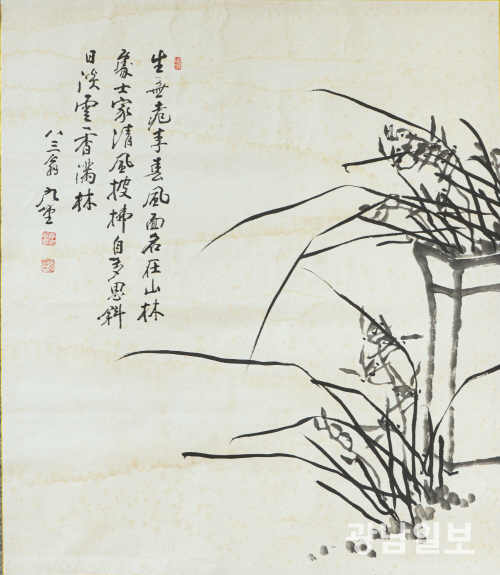 生無桃李春風面名在山林
處士家清風披拂自多思斜
日淡雲香滿林
八三翁 九堂
광남일보